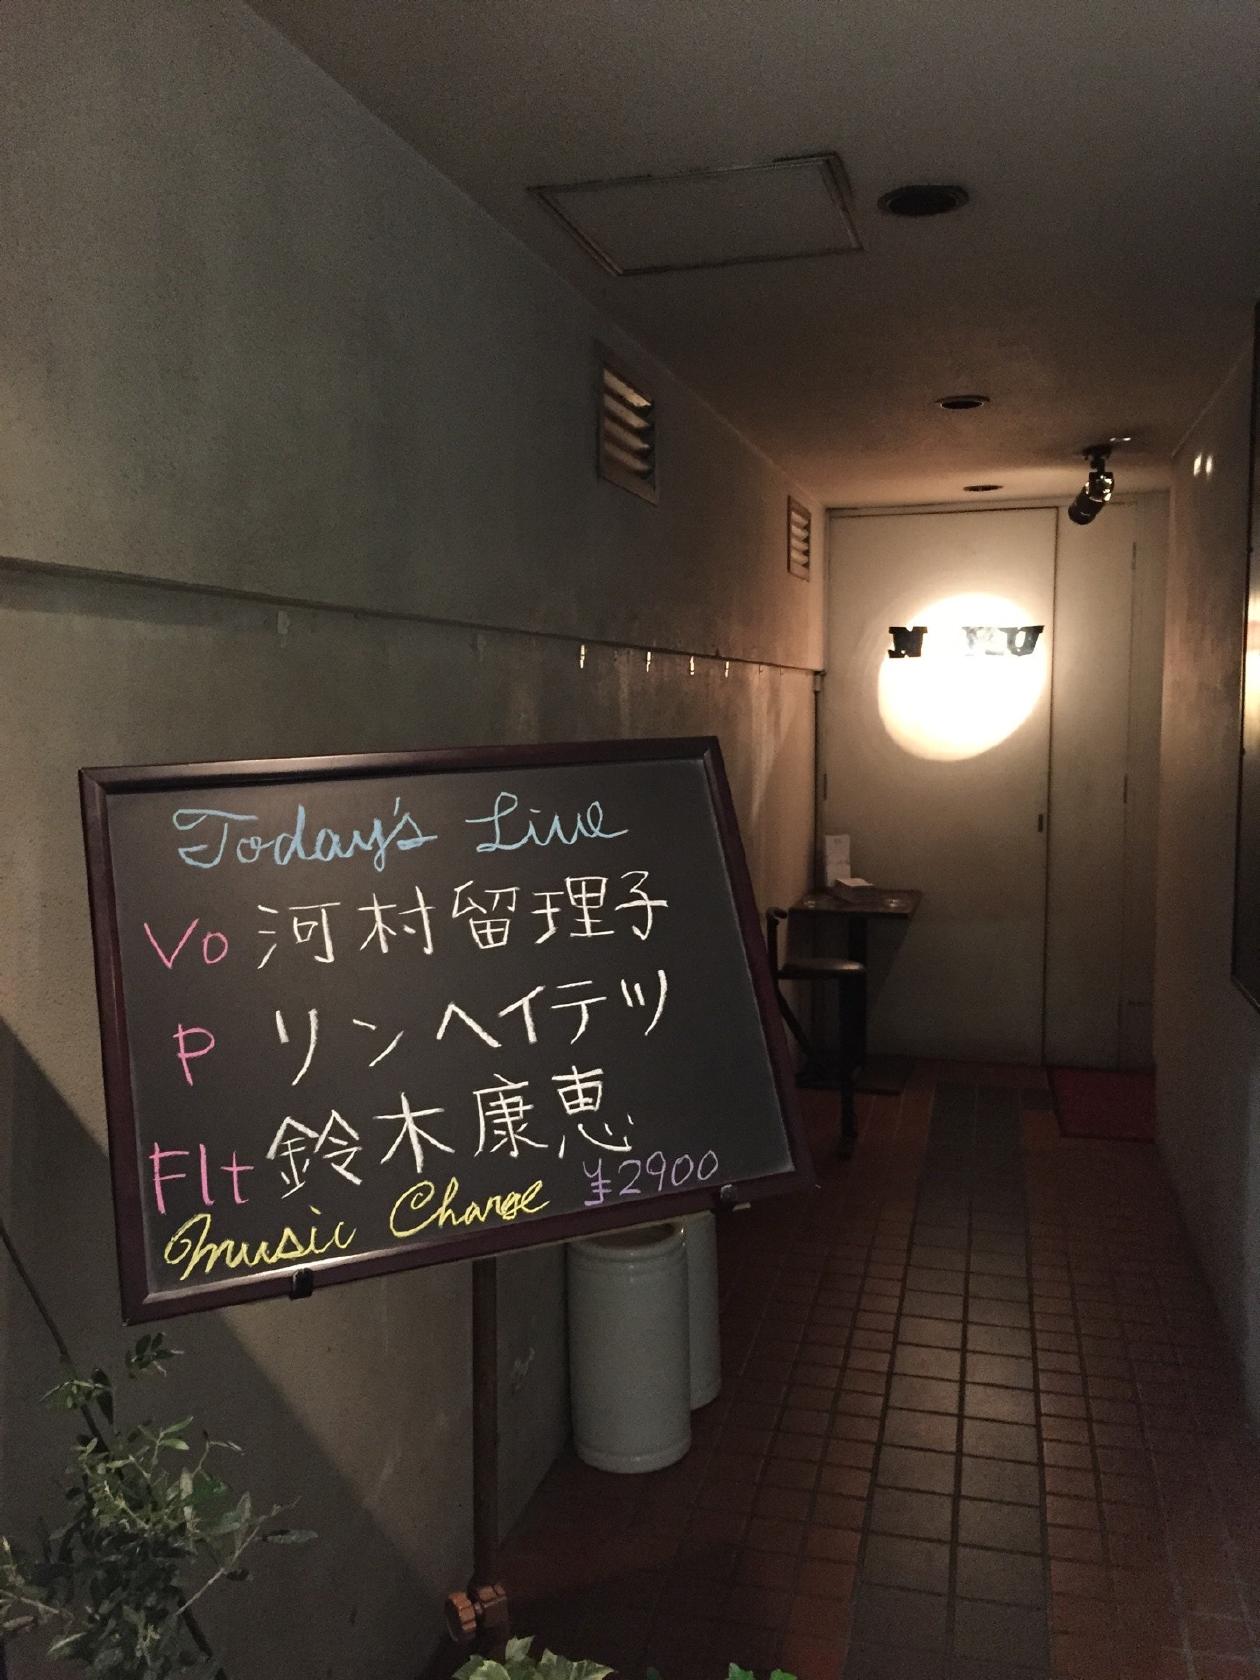 Today's Live
Vo 河村留理子
P リンヘイテツ
Flt 鈴木康恵
Music Charge ¥2900